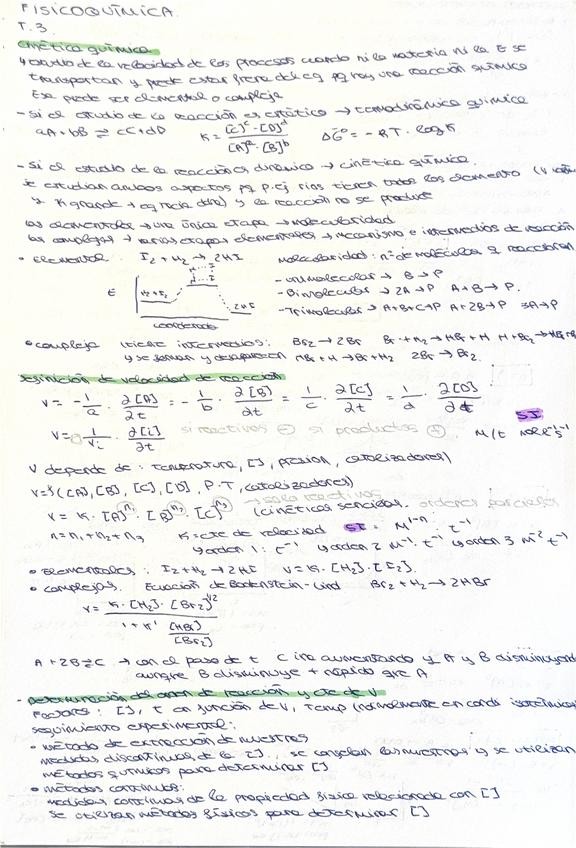 FISICOQUÍMICA
T.3
cinética química
estudio de la velocidad de los procesos cuando ni la materia ni la E se
transportan y puede estar fuera del eq pq hay una reacción química
Esa puede ser elemental o compleja
- Si el estudio de la reacción es estático → termodinámica química
aA + bB ⇌ cC + dD K = [C]^c · [D]^d / [A]^a · [B]^b ΔG° = - RT · log K
- Si el estudio de la reacción es dinámico → cinética química.
se estudian ambos aspectos pq p.ej
y K grande y la reacción no se produce
las elementales → una única etapa → molecularidad
las complejas → varias etapas elementales → mecanismo e intermedios de reacción
• Elemental: I₂ + H₂ → 2HI molecularidad: nº de moléculas q reaccionan
- Unimolecular → B → P
E H₂ + I₂ 2HI - Bimolecular → 2A → P A + B → P.
- Trimolecular → A + B + C → P A + 2B → P 3A → P
coordenada
• compleja (tiene intermedios: Br₂ → 2Br Br + H₂ → HBr + H H + Br₂ →
y se forman y desaparecen HBr + H → Br + H₂ 2Br → Br₂.
Definición de velocidad de reacción
v = - 1/a · ∂[A]/∂t = - 1/b · ∂[B]/∂t = 1/c · ∂[C]/∂t = 1/d · ∂[D]/∂t
SI
v = 1/νi · ∂[i]/∂t si reactivos ⊖ si productos ⊕ M/t
V depende de: temperatura, [], presión, catalizadores)
v = f([A], [B], [C], [D], P. T, catalizadores)
→ solo reactivos
v = K · [A]^n₁ · [B]^n₂ · [C]^n₃ (cinéticas sencillas. ordenes parciales
n = n₁ + n₂ + n₃ K = cte de velocidad SI = M^1-n · t⁻¹
orden 1: t⁻¹ orden 2 M⁻¹ · t⁻¹ orden 3 M⁻² t⁻¹
• Elementales: I₂ + H₂ → 2HI v = K · [H₂] · [I₂].
• complejas. Ecuación de Bodenstein-Lind Br₂ + H₂ → 2HBr
v = K · [H₂] · [Br₂]^1/2 / 1 + K' [HBr]/[Br₂]
A + 2B ⇌ C → con el paso de t C irá aumentando y A y B disminuyendo
aunque B disminuye + rápido que A
- Determinación del orden de reacción y cte de V
Factores: [], t en función de V, Temp (normalmente en condi isotérmicas
seguimiento experimental:
• método de extracción de muestras
medidas discontinuas de la []. se congelan las muestras y se utilizan
métodos químicos para determinar []
• métodos continuos:
medidas continuas de la propiedad física relacionada con []
se utilizan métodos físicos para determinar []